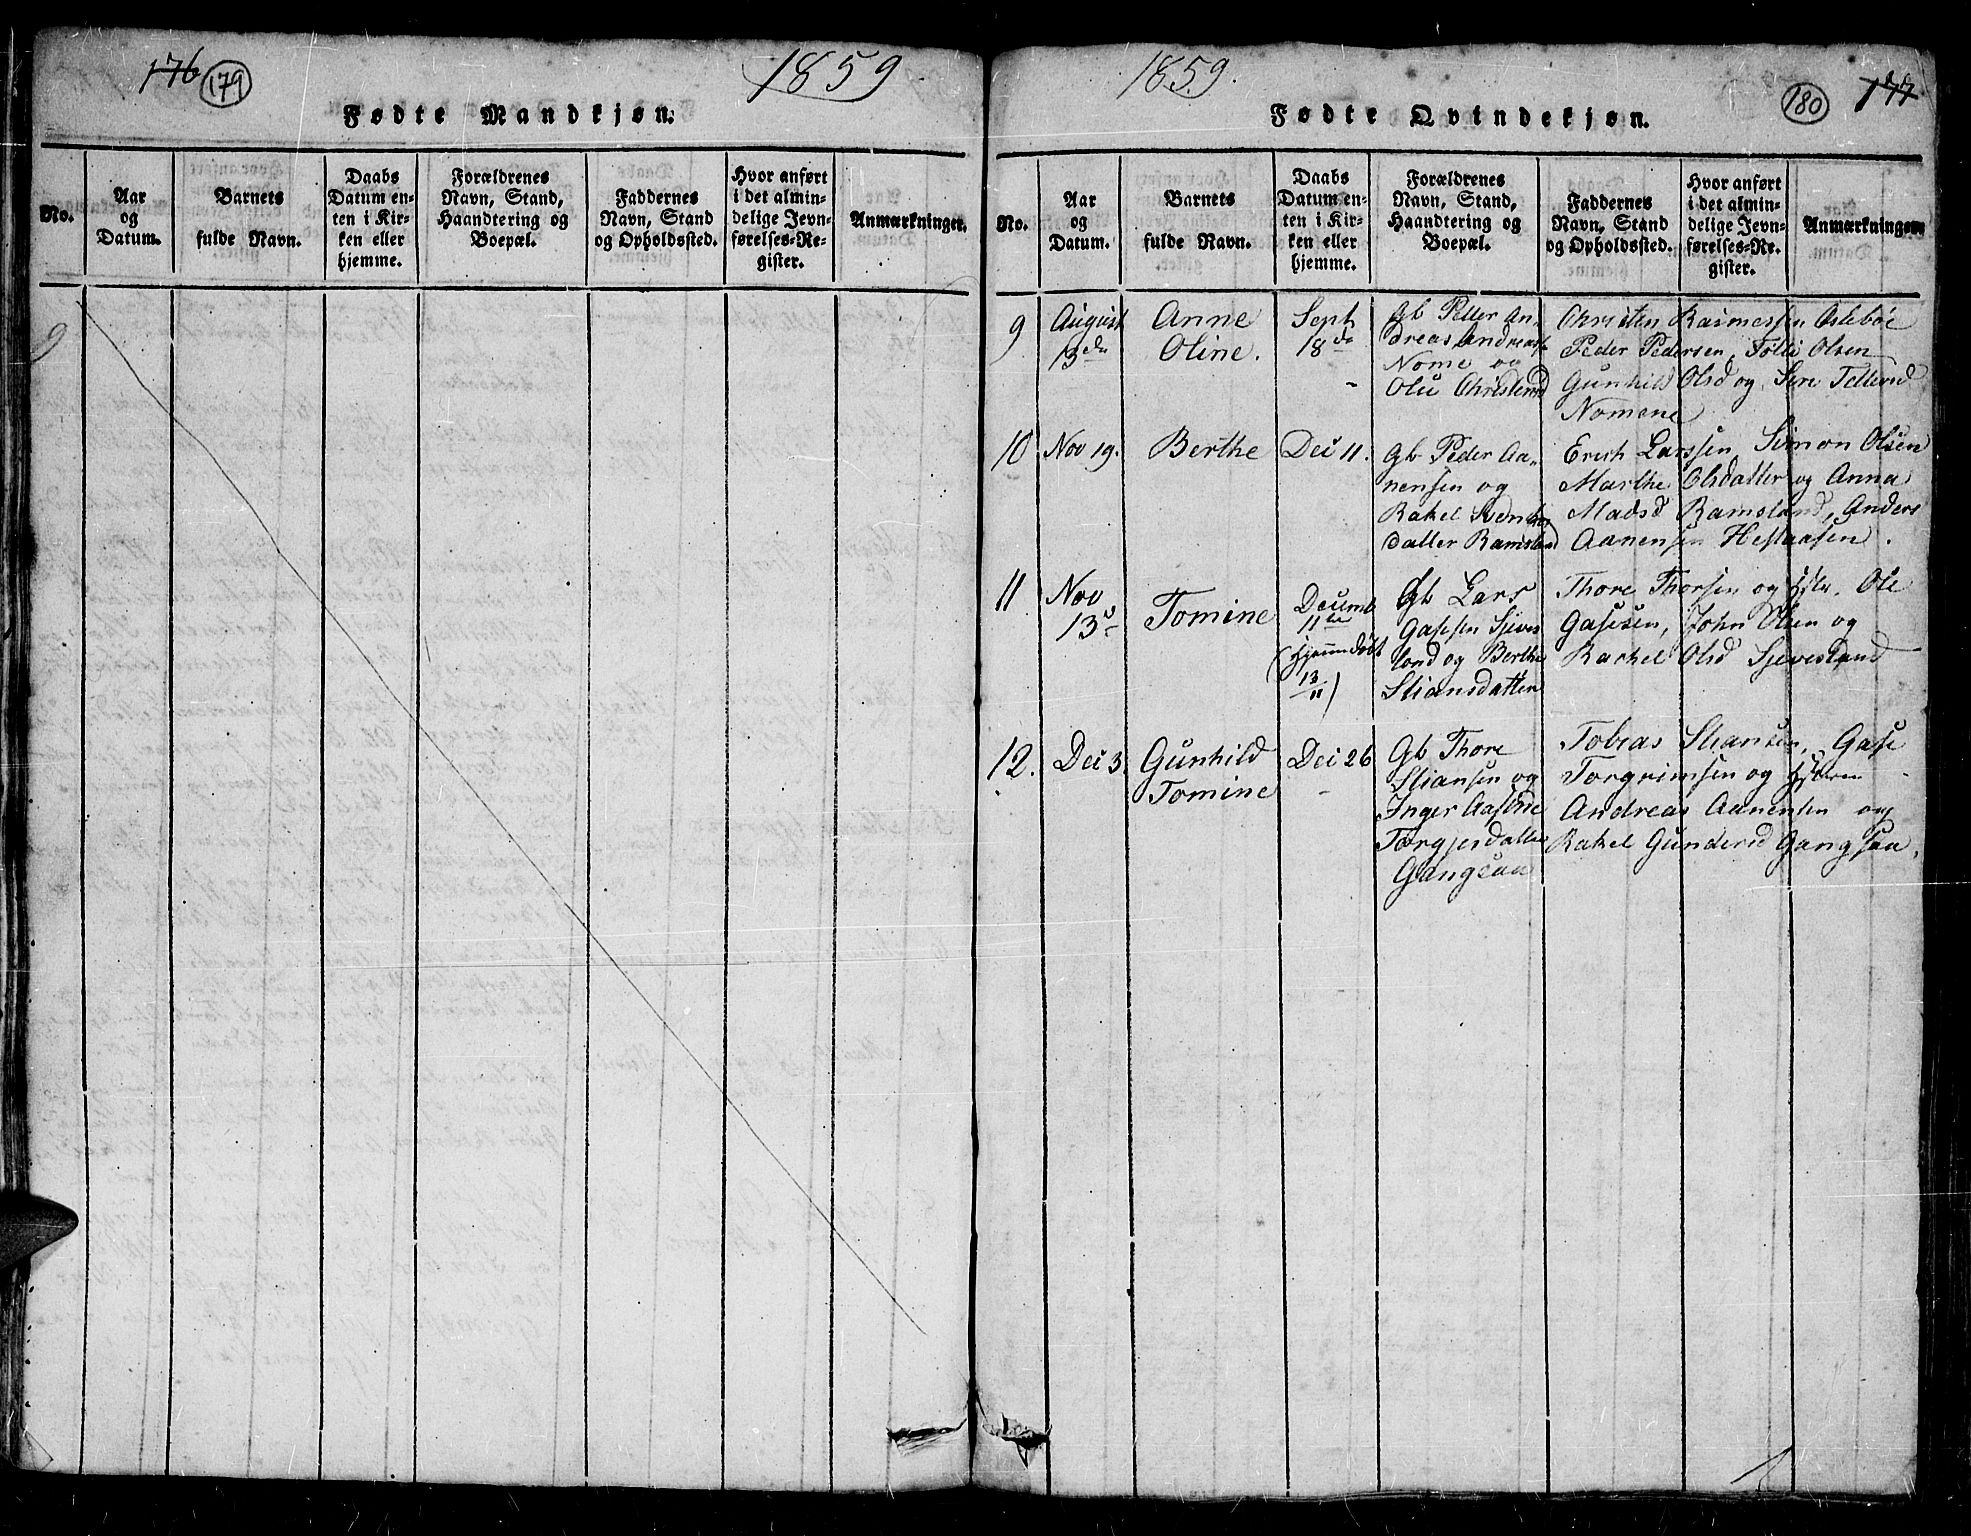 176 179 1859
Fødte Mandkjøn.
No.
Aar
og
Datum.
Barnets
fulde Navn.
Daabs
Datum en-
ten i Kir-
ken eller
hjemme.
Forældrenes
Navn, Stand,
Haandtering og
Boepæl.
Faddernes
Navn, Stand
og Opholdssted.
Hvor anført
i det almin-
delige Jevn-
førelses-Re-
gister.
Anmærkninger.
1859. 180 177
Fødte Qvindekjøn.
No.
Aar
og
Datum.
Barnets
fulde Navn.
Daabs
Datum en-
ten i Kir-
ken eller
hjemme.
Forældrenes
Navn, Stand,
Haandtering og
Boepæl.
Faddernes
Navn, Stand
og Opholdssted.
Hvor anført
i det almin-
delige Jevn-
førelses-Re-
gister.
Anmærkninger
9
August
13de
Anne
Oline.
Sept
18de
Gb Petter An-
dreas Andreass
Nome og
Olu
Christen Rasmessen Aslebøe
Peder Pedersen, Olsen
Gunhild Olsd og
Nomene
10
Nov 19.
Berthe
Dec 11.
Gb Peder Aa-
nensen og
Rakel
datter Ramsland
Erich Larssen, Simon Olsen
Marthe Olsdatter og Anna
Madsd Ramsland, Anders
Aanensen Hestaasen.
11
Nov
13de
Tomine
Decemb
11te
(Hjemmedøbt
13/11)
Gb Lars
Gasesen Sjeves
land og Berthe
Stiansdatter
Thore Thorsen og Hstu. Ole
Gasesen, John Olsen og
Rachel Olsd Sjevesland
12.
Dec 3.
Gunhild
Tomine
Dec 26
Gb Thore
Stiansen og
Inger Aasine
Torgjersdatter
Gangsaa
Tobias Stiansen, Gase
Torgrimsen og
Andreas Aanensen og
Rakel Gundersd Gangsaa,